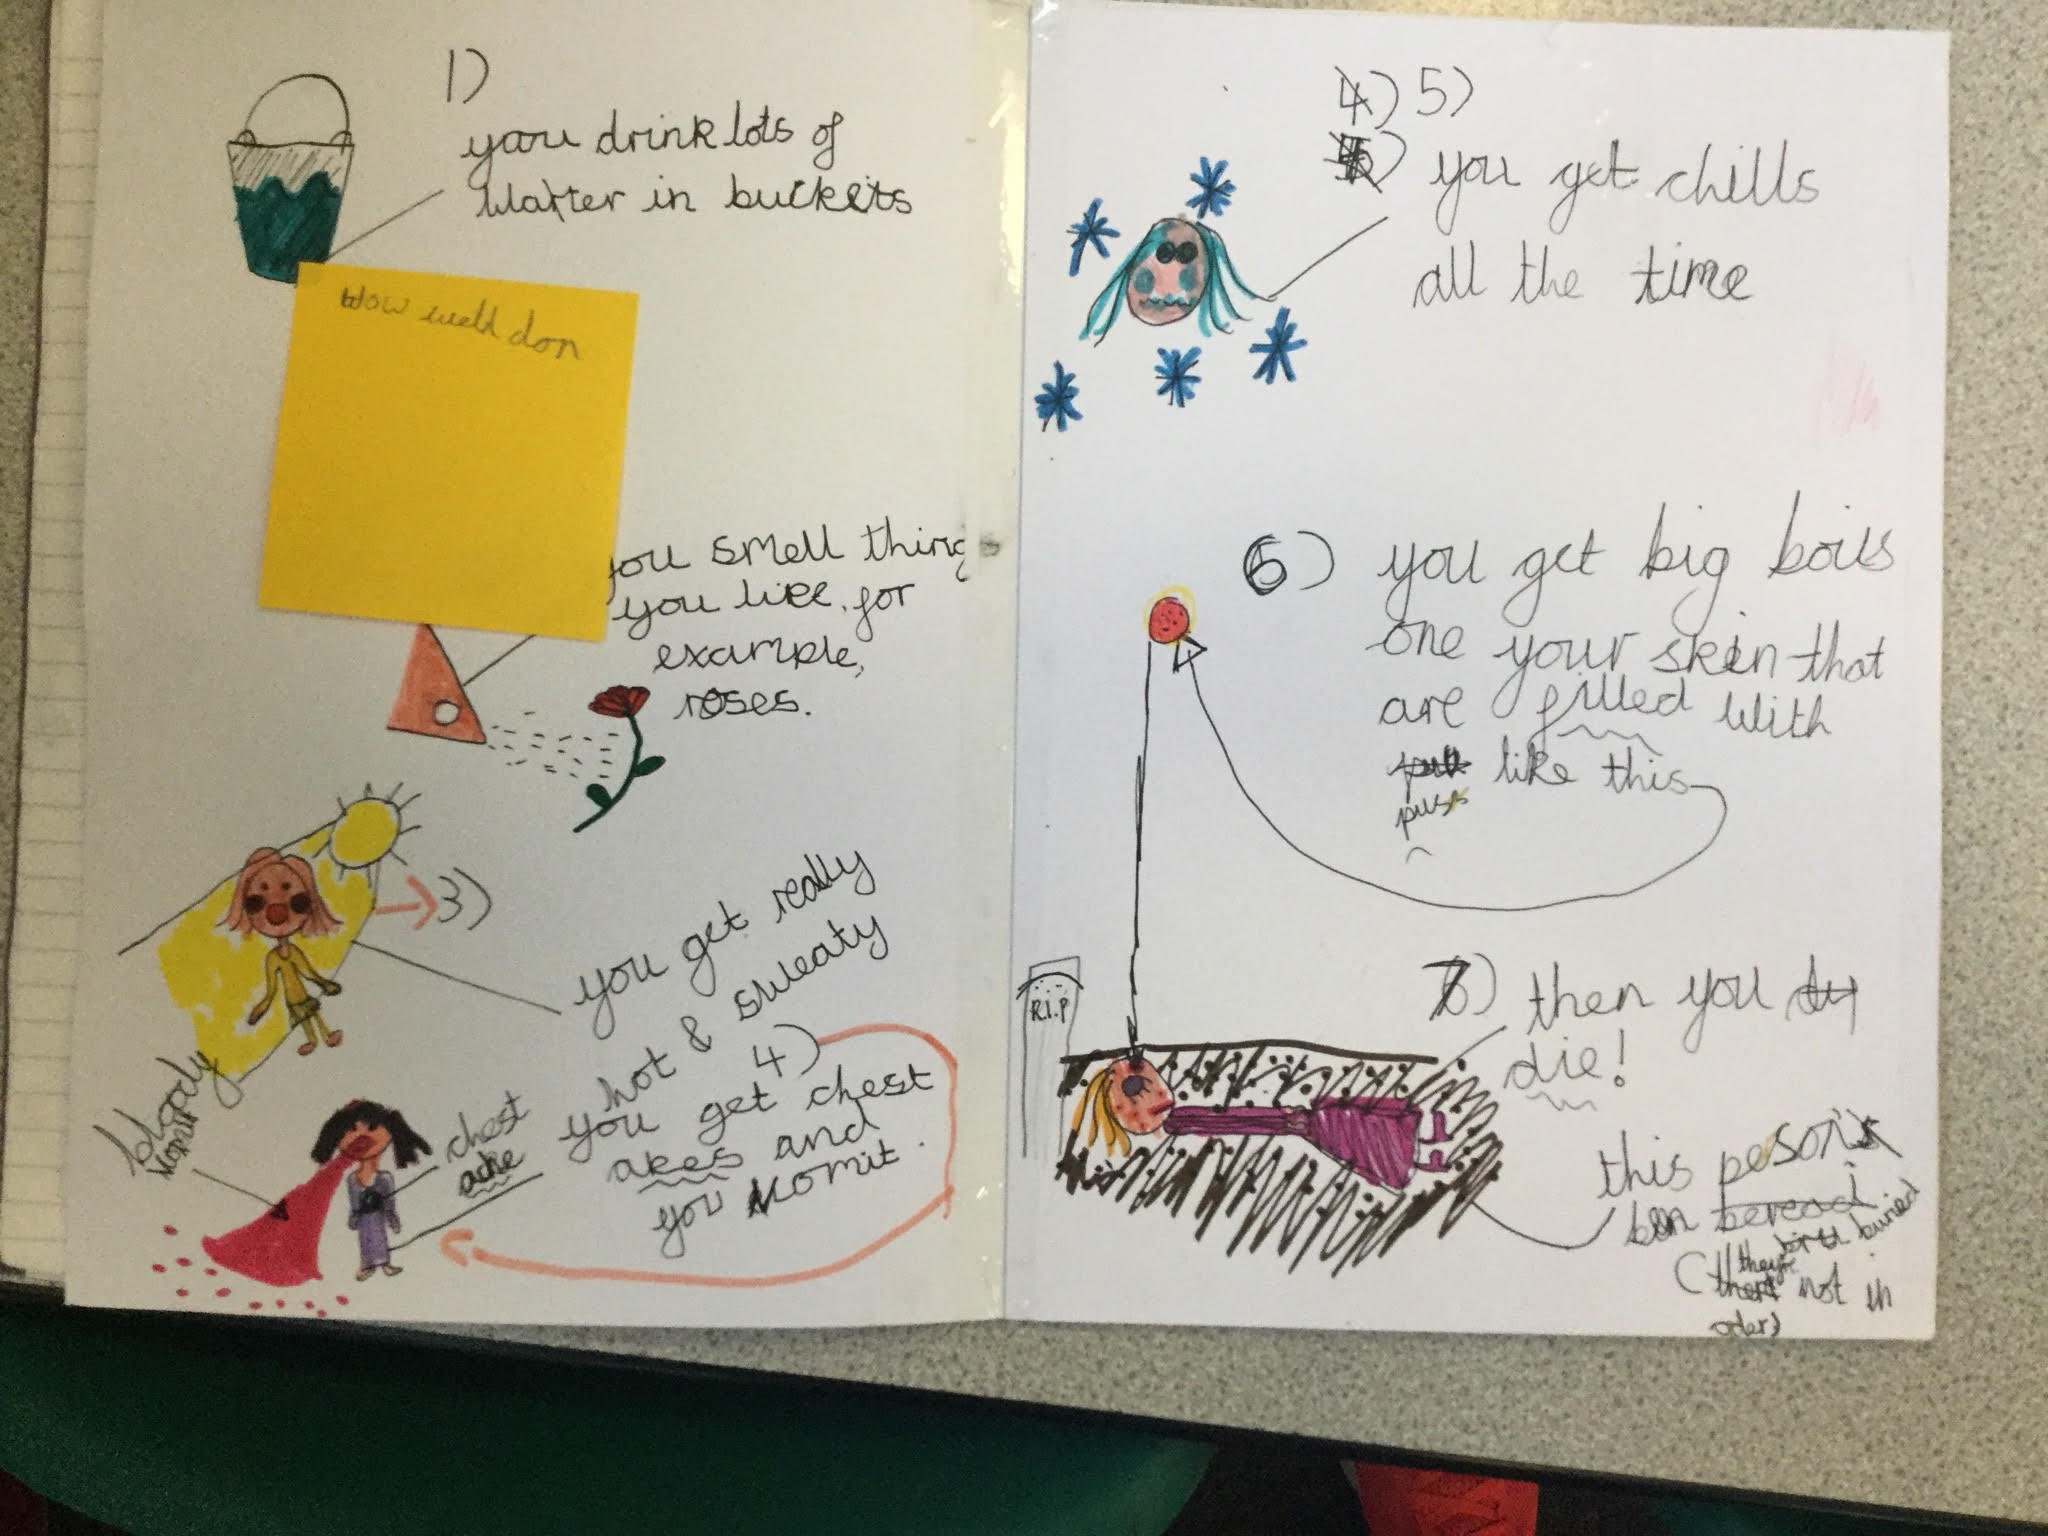 1)
you drink lots of
Water in buckets
Wow well don
you smell thing
you like, for
example,
roses.
3)
you get really
hot & sweaty
4)
you get chest
akes and
you vomit.
chest
ache
bloody
vomit
4) 5)
you get chills
all the time
6) you get big boils
one your skin that
are filled with
like this
puss
7) then you dy
die!
R.I.P
this peson is
ben beread
buried
(they're not in
oder)